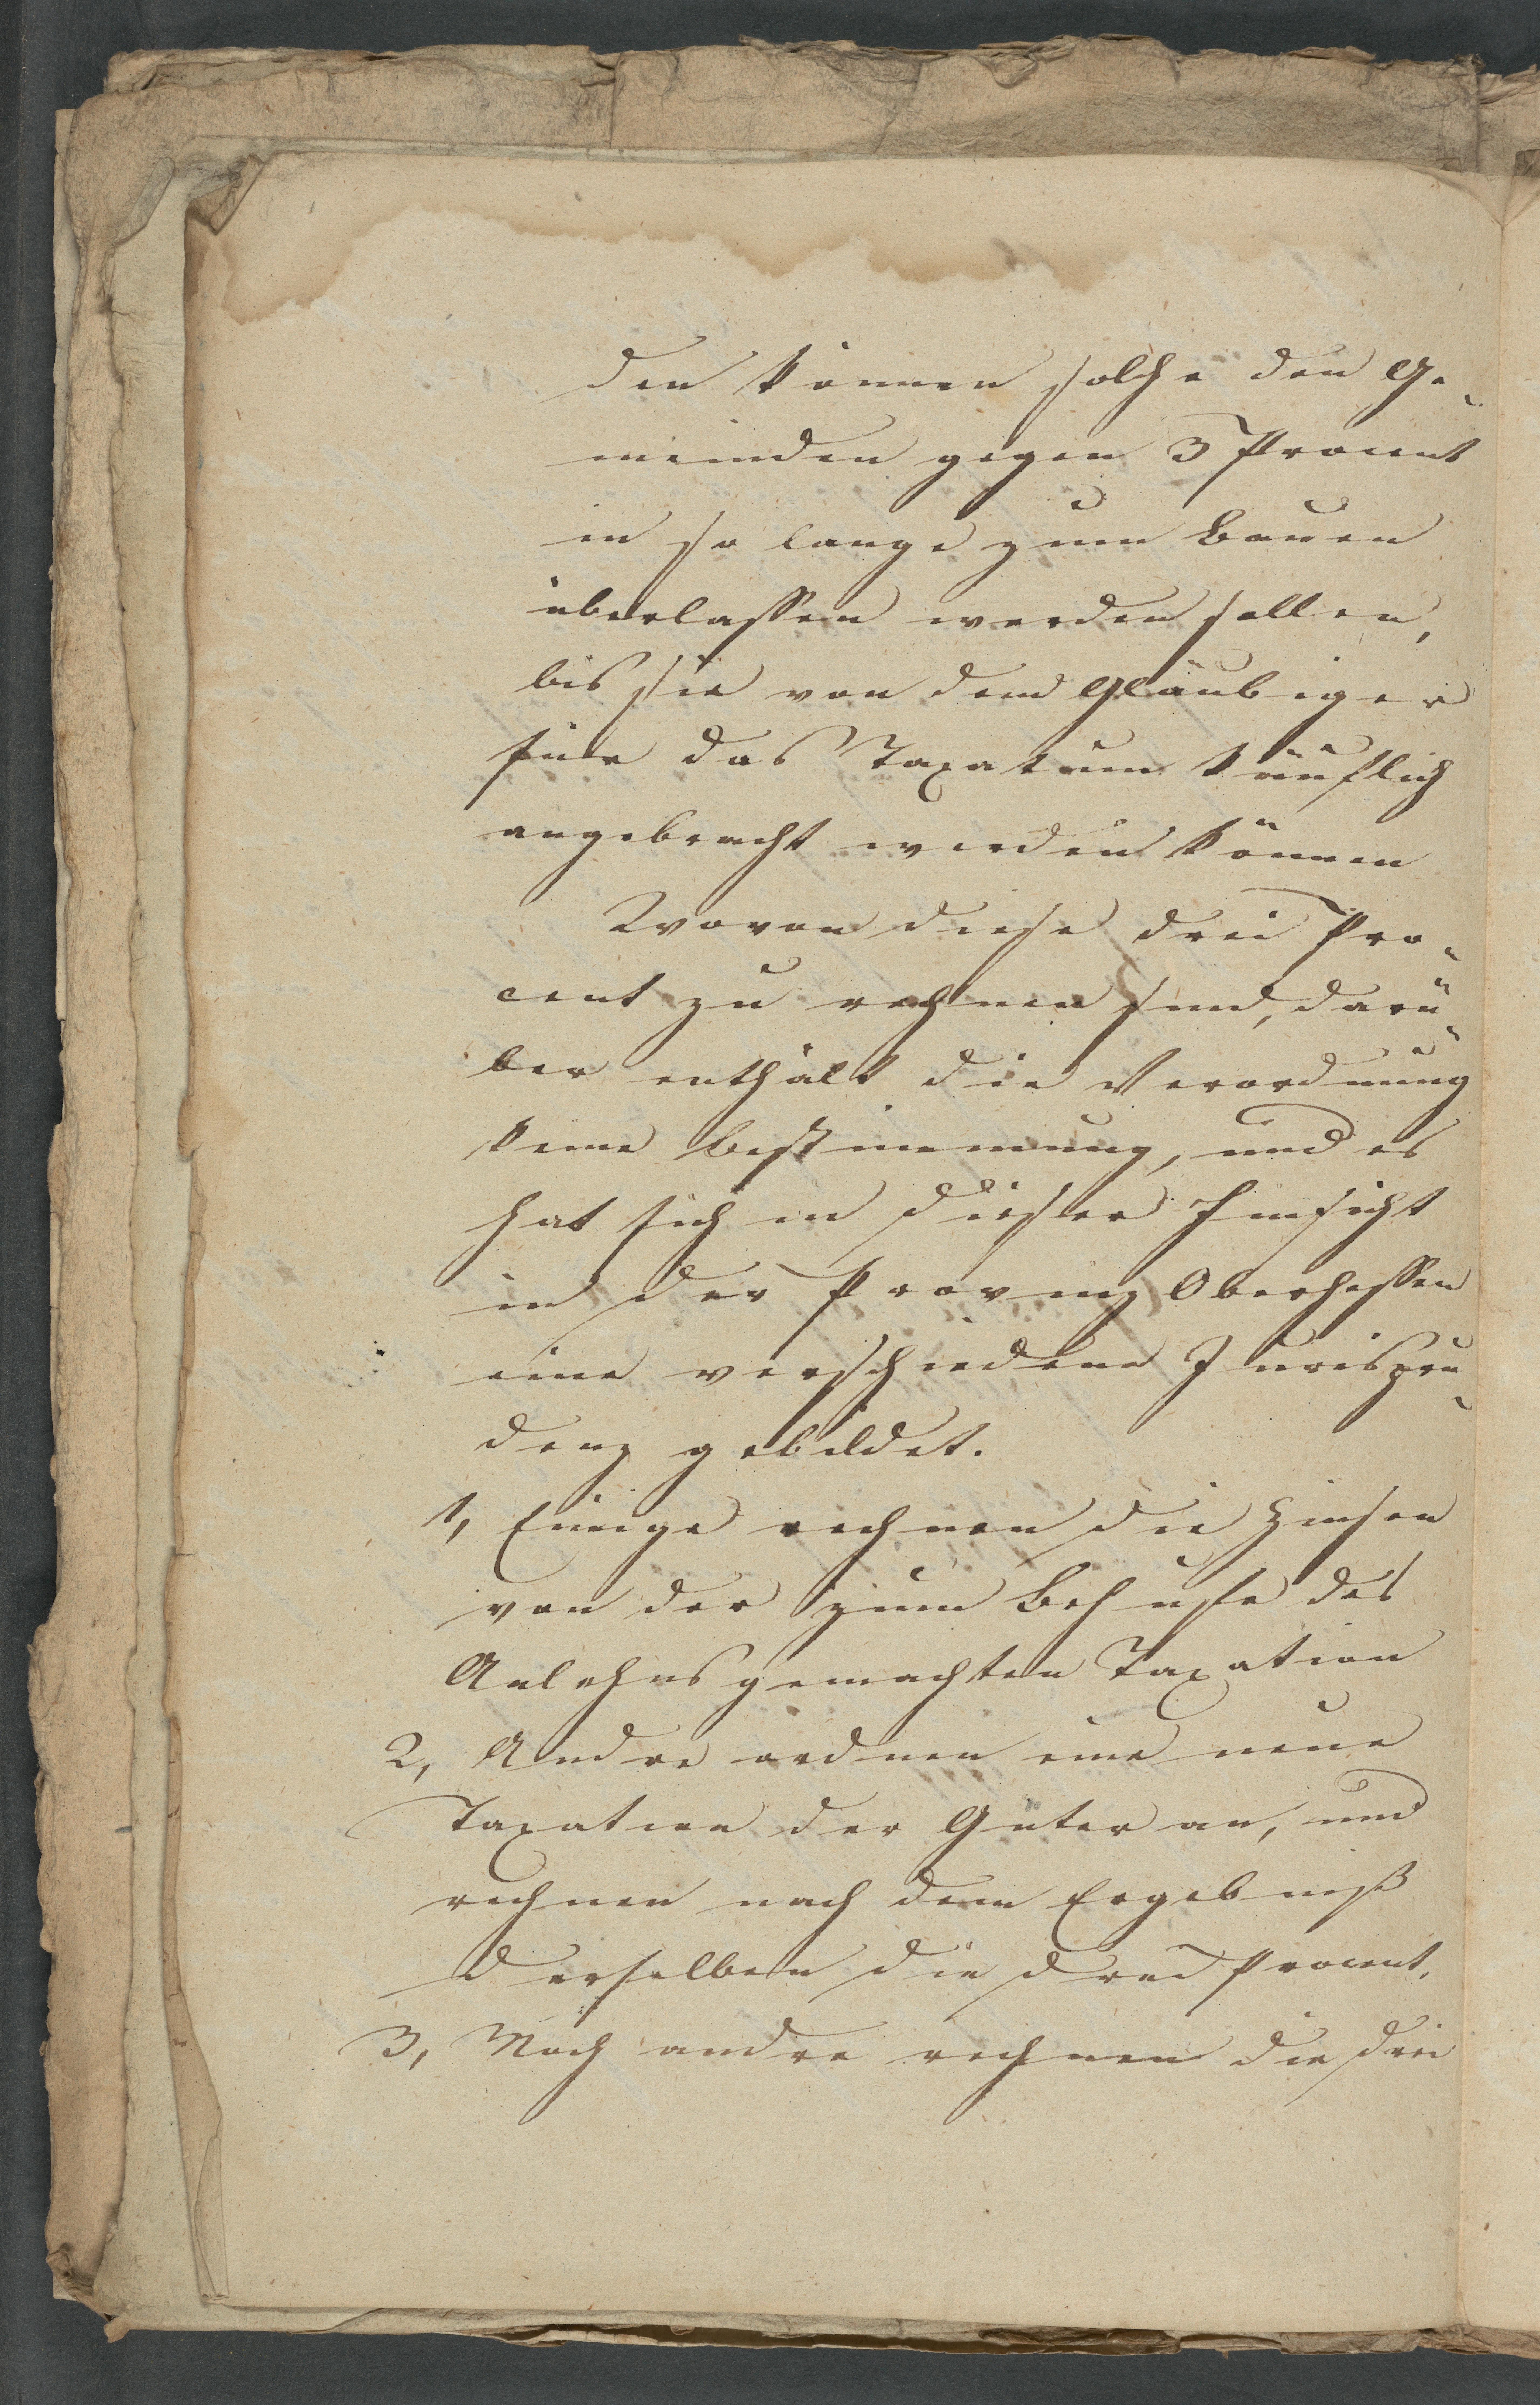 den können solche den Ge-
meinden gegen 3 Procent
in so lange zum Bauen
überlassen werden sollen,
bis sie von dem Gläubiger
für das Taxatum käuflich
angebracht werden können
Wovon diese drei Pro-
cent zu rechnen sind, darü-
ber enthält die Verordnung
keine Bestimmung, und es
hat sich in dieser Hinsicht
in der Provinz Oberhessen
eine verschiedene Jurispru-
denz gebildet.
1, Einige rechnen die Zinsen
von der zum Behufe des
Anlehns gemachten Taxation
2, Andre ordnen eine neue
Taxation der Güter an, und
rechnen nach dem Ergebniß
derselben die drei Procent.
3, Noch andre rechnen die drei